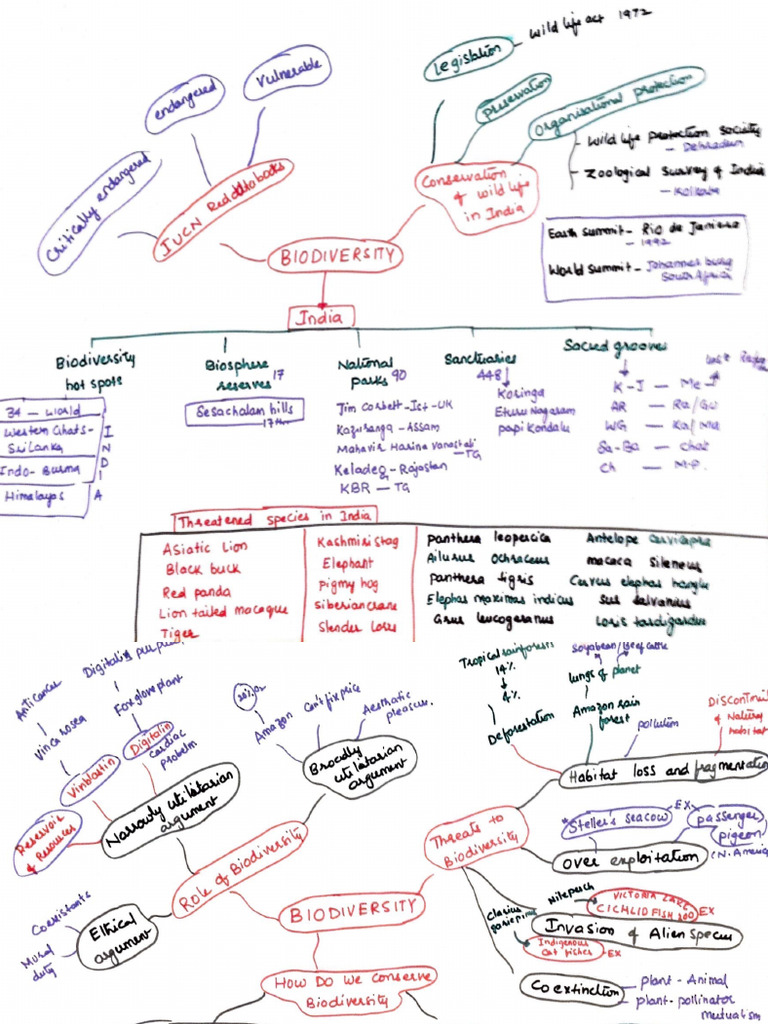 Legislation - Wild life act 1972
vulnerable
endangered
Critically endangered
preservation
Organisational protection
- Wild life protection society
- Dehradun
- Zoological Survey of India
- Kolkata
Conservation
of wild life
in India
BIODIVERSITY
Earth summit - Rio de Janiero
- 1992
World Summit - Johannes burg
South Africa
India
Biodiversity
hot spots
34 - World
Western Ghats -
Sri Lanka
Indo - Burma
Himalayas
INDIA
Biosphere
reserves 17
Sesachalam hills
17th
National
parks 90
Jim Corbett - Ist - UK
Kaziranga - Assam
Mahavir Harina Vanasthali
- TG
Keladeg - Rajastan
KBR - TG
Sanctuaries
448
Koringa
Eturu Nagaram
papi Kondalu
Sacred grooves
K - J - Me -
AR - Ra / Gu
WG - Ka / Ma
Sa - Ba - Chat
Ch - M.P.
Threatened species in India
Asiatic Lion
Black buck
Red panda
Lion tailed macaque
Tiger
Kashmiri stag
Elephant
Pigmy hog
Siberian crane
Slender Loris
Panthera leopersica
Ailurus ochraceus
Panthera tigris
Elephas maximas indicus
Grus leucogeranus
Antelope cervicapra
macaca Sileneus
Cervus elephas hanglu
Sus salvanius
Loris tardigardus
Anticancer
Vinca rosea
Vinblastin
Digitalis
Foxglove plant
Digitalin
cardiac
probelm
Reservoir
of Resources
Narrowly utilitarian
argument
20% O2
Amazon
Can't fix price
Aesthatic
pleasure.
Broadly
utilitarian
argument
Role of Biodiversity
Ethical
argument
Coexistants
Moral
duty
BIODIVERSITY
HOW DO We CONSERVE
Biodiversity
Threats to
Biodiversity
Tropical rainforest
14%
4%
Deforestation
Soyabean / beef cattle
lungs of planet
Amazon rain
forest
pollution
DISCONTINUI
of Natural
habitat
Habitat loss and fragmentation
Steller's seacow
EX
passenger
pigeon
(N. America
Over exploitation
Nile perch
VICTORIA LAKE
CICHLID FISH 200 EX
Clarius
gariepinus
Invasion of Alien species
Indigenous
Cat fishes - EX
Coextinction
plant - Animal
plant - pollinator
mutualism